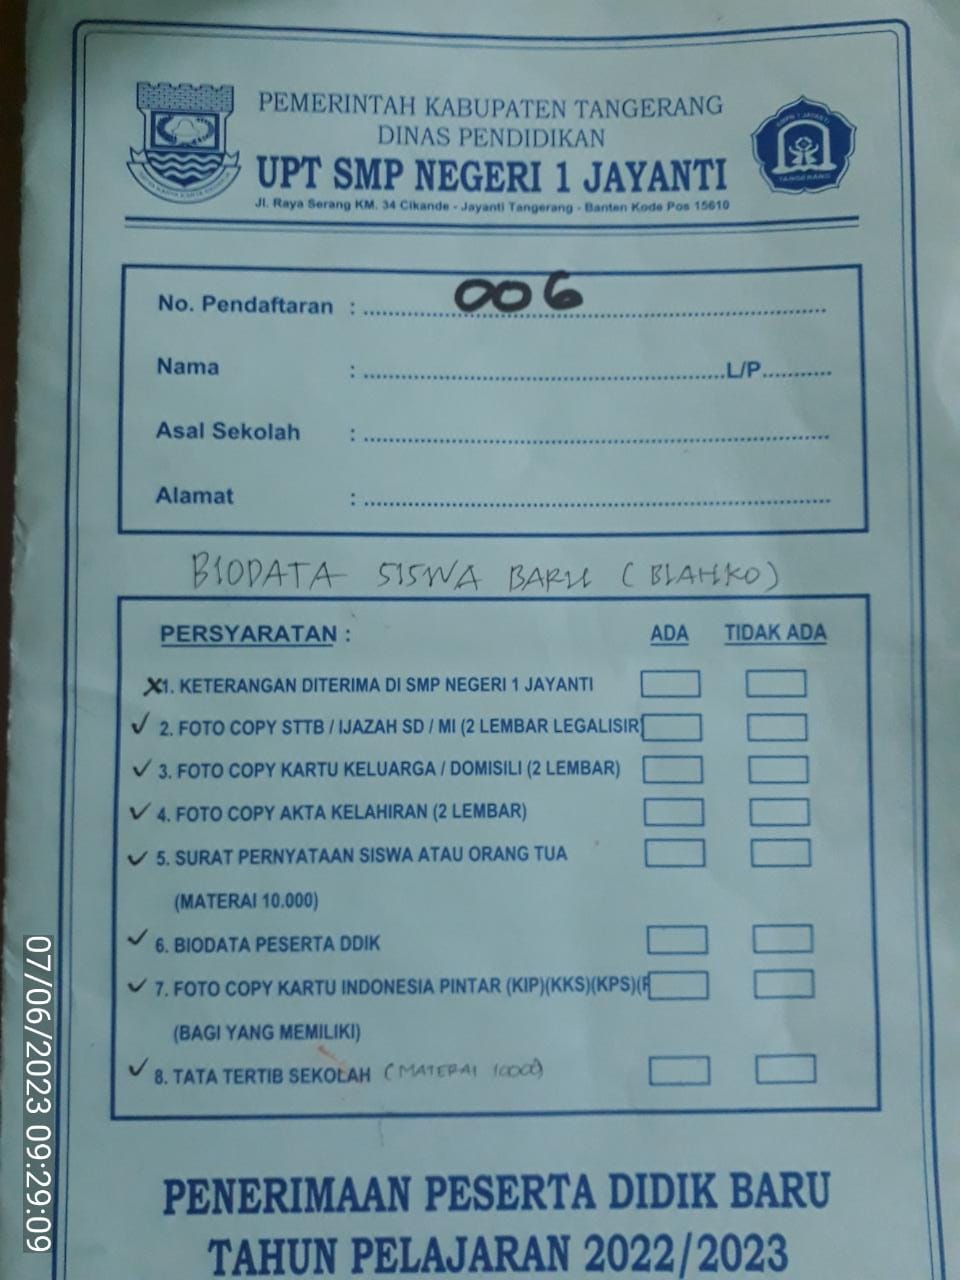 PEMERINTAH KABUPATEN TANGERANG
DINAS PENDIDIKAN
UPT SMP NEGERI 1 JAYANTI
Jl. Raya Serang KM. 34 Cikande - Jayanti Tangerang - Banten Kode Pos 15610
SMPN 1 JAYANTI
TANGERANG
No. Pendaftaran : 006
Nama : L/P
Asal Sekolah :
Alamat :
BIODATA SISWA BARU (BLAHKO)
PERSYARATAN : ADA TIDAK ADA
X1. KETERANGAN DITERIMA DI SMP NEGERI 1 JAYANTI
✓ 2. FOTO COPY STTB / IJAZAH SD / MI (2 LEMBAR LEGALISIR)
✓ 3. FOTO COPY KARTU KELUARGA / DOMISILI (2 LEMBAR)
✓ 4. FOTO COPY AKTA KELAHIRAN (2 LEMBAR)
✓ 5. SURAT PERNYATAAN SISWA ATAU ORANG TUA
(MATERAI 10.000)
✓ 6. BIODATA PESERTA DDIK
✓ 7. FOTO COPY KARTU INDONESIA PINTAR (KIP)(KKS)(KPS)(
(BAGI YANG MEMILIKI)
✓ 8. TATA TERTIB SEKOLAH (MATERAI 10000)
PENERIMAAN PESERTA DIDIK BARU
TAHUN PELAJARAN 2022/2023
07/06/2023 09:29:09